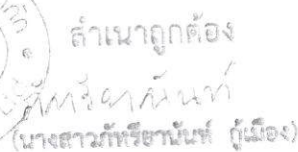 สำเนาถูกต้อง
(นางสาวภัทรียานันท์ กู้เมือง)